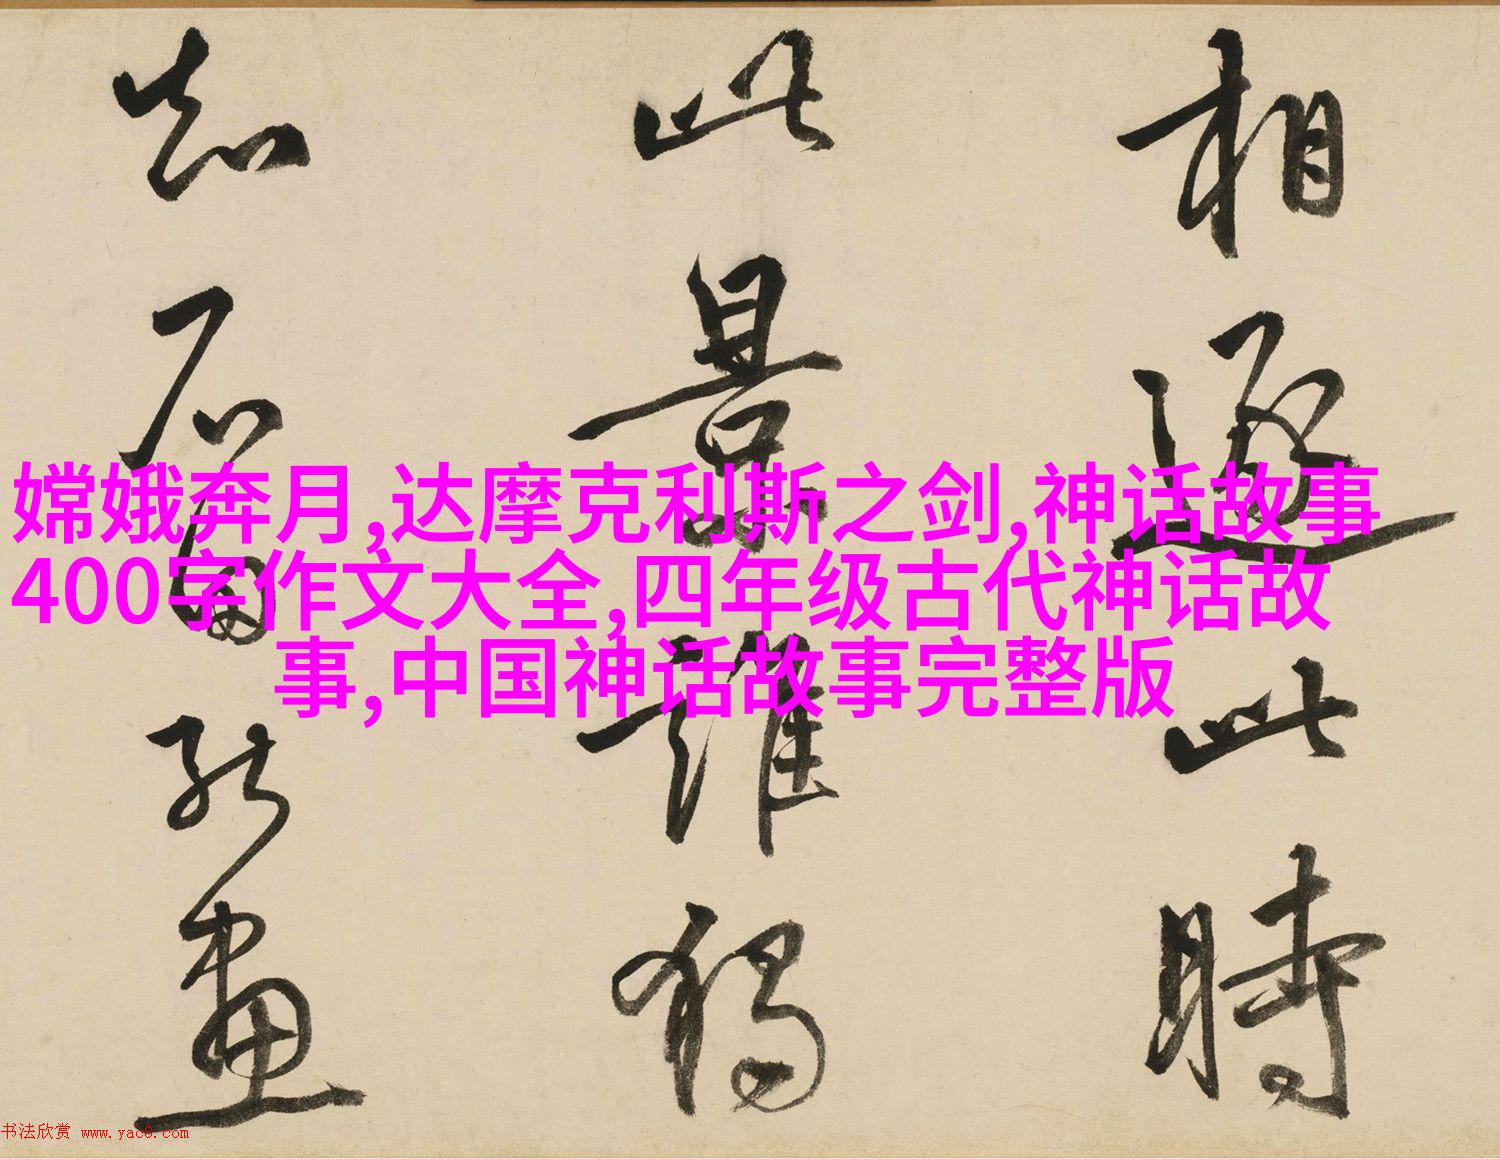 相逐此時
此景誰獨
知石田能畫
嫦娥奔月,达摩克利斯之剑,神话故事
400字作文大全,四年级古代神话故
事,中国神话故事完整版
书法欣赏 www.yac8.com